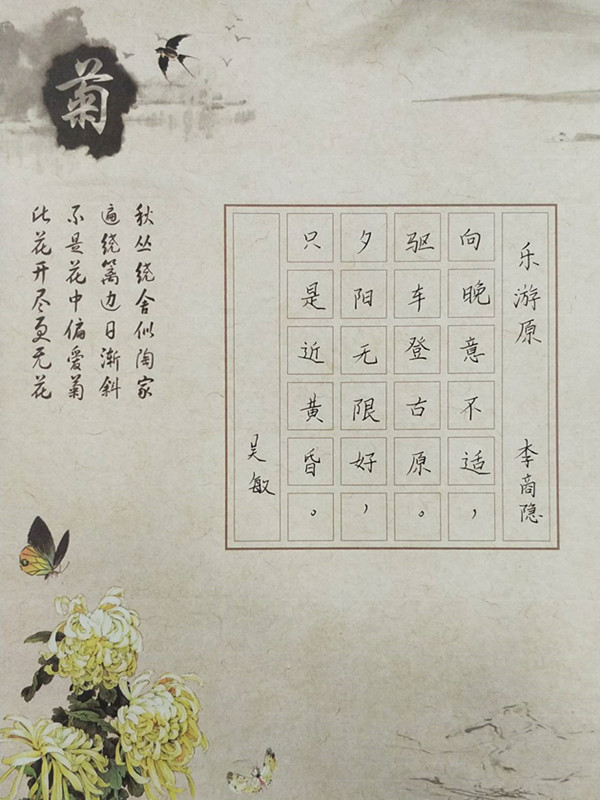 菊
乐游原 李商隐
向晚意不适，
驱车登古原。
夕阳无限好，
只是近黄昏。
吴敏
秋丛绕舍似陶家
遍绕篱边日渐斜
不是花中偏爱菊
此花开尽更无花